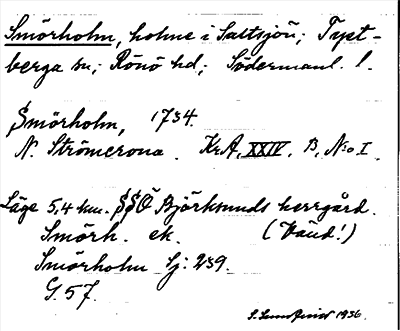 Smörholm, holme i Saltsjön; Tyst-
berga sn; Rönö hd; Södermanl. l.
Smörholm, 1734.
N. Strömcrona. KrA, XXIV, B, No I.
Läge 5,4 km. SSÖ Björksunds herrgård.
Smörh. ek. (Vänd!)
Smörholm Sj: 239.
G. 57.
S. Lundqvist 1936.